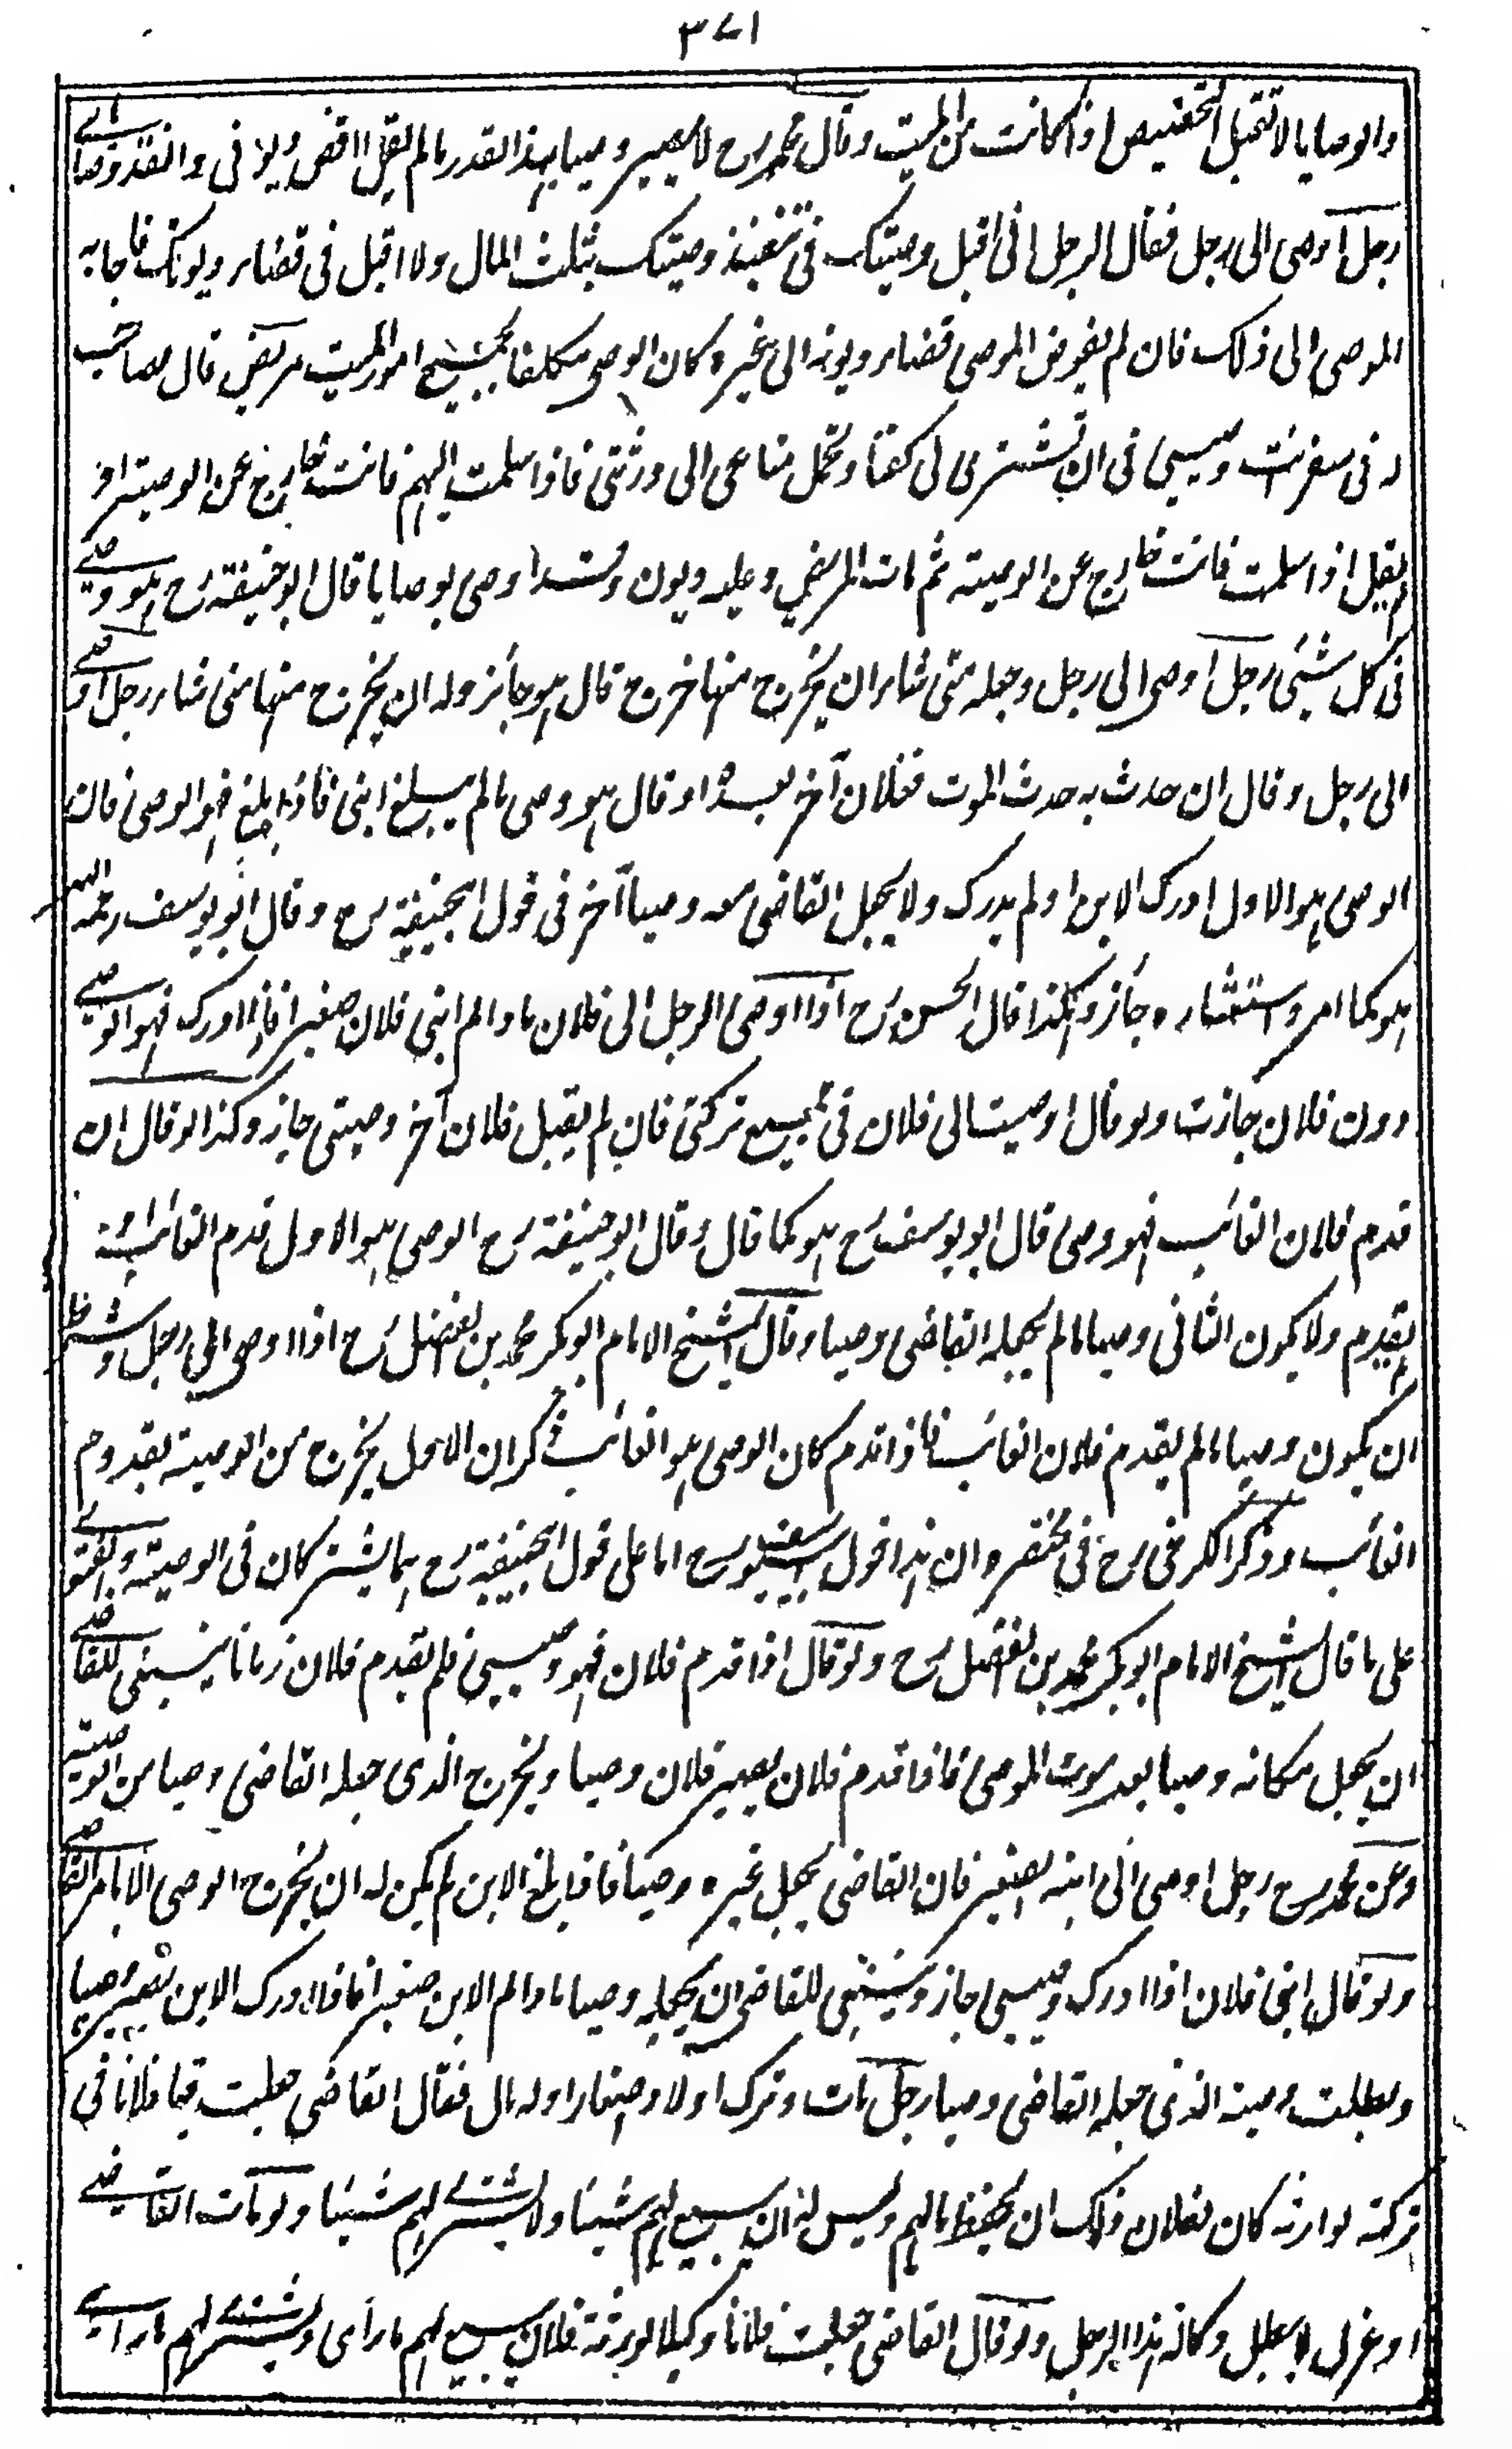 ٣٧١
والوصايا لا تقبل التخصيص اذا كانت من الميت وقال محمد رح لا يصير وصيا بهذا القدر ما لم يقل اقض ديونى وانفذ وصاياى
رجل اوصى الى رجل فقال الرجل انى اقبل وصيتك فى تنفيذ وصيتك بثلث المال ولا اقبل فى قضاء ديونك فاجابه
الموصى الى ذلك فان لم يفوض الموصى قضاء ديونه الى غيره كان الوصى مكلفا بجميع امور الميت مريض قال لصاحب
له فى سفر انت وصيى فى ان تشترى لى كفنا وتحمل متاعى الى ورثتى فاذا سلمت اليهم فانت خارج عن الوصية او
لم يقل اذا سلمت فانت خارج عن الوصية ثم مات المريض وعليه ديون وقد اوصى بوصايا قال ابو حنيفة رح هو وصى
فى كل شىء رجل اوصى الى رجل وجعله متى شاء ان يخرج منها خرج قال هو جائز وله ان يخرج منها متى شاء رجل اوصى
الى رجل وقال ان حدث به حدث الموت ففلان آخر بعده او قال هو وصى ما لم يبلغ ابنى فاذا بلغ فهو الوصى فان
الوصى هو الاول ادرك الابن او لم يدرك ولا يجعل القاضى معه وصيا آخر فى قول ابيحنيفة رح وقال ابو يوسف رحمه الله
هو كما امر واستثناءه جائز وهكذا قال الحسن رح اذا اوصى الرجل الى فلان ما دام ابنى فلان صغيرا فاذا ادرك فهو الوصى
دون فلان جازت ولو قال اوصيت الى فلان فى جميع تركتى فان لم يقبل فلان آخر وصيتى جاز وكذا لو قال ان
قدم فلان الغائب فهو وصى قال ابو يوسف رح هو كما قال وقال ابو حنيفة رح الوصى هو الاول قدم الغائب او
لم يقدم ولا يكون الثانى وصيا ما لم يجعله القاضى وصيا وقال الشيخ الامام ابو بكر محمد بن الفضل رح اذا اوصى الى رجل وشرط
ان يكون وصيا ما لم يقدم فلان الغائب فاذا قدم كان الوصى هو الغائب ذكر ان الاول يخرج من الوصية بقدوم
الغائب وذكر الكرخى رح فى مختصره ان هذا قول ابييوسف رح اما على قول ابيحنيفة رح هما يشتركان فى الوصية والفتوى
على ما قال الشيخ الامام ابو بكر محمد بن الفضل رح ولو قال اذا قدم فلان فهو وصيى فلم يقدم فلان زمانا ينبغى للقاضى
ان يجعل مكانه وصيا بعد موت الموصى فاذا قدم فلان يصير فلان وصيا ويخرج الذى جعله القاضى وصيا من الوصية
وعن محمد رح رجل اوصى الى ابنه الصغير فان القاضى يجعل غيره وصيا فاذا بلغ الابن لم يكن له ان يخرج الوصى الا بامر القاضى
ولو قال ابنى فلان اذا ادرك وصيى جاز وينبغى للقاضى ان يجعله وصيا ما دام الابن صغيرا فاذا ادرك الابن يصير وصيا
وبطلت وصية الذى جعله القاضى وصيا رجل مات وترك اولادا صغارا وله مال فقال القاضى جعلت قيما فلانا فى
تركته لوارثه كان لفلان ذلك ان يحفظ مالهم وليس له ان يبيع لهم شيئا ولا يشترى لهم شيئا ولو مات القاضى
او عزل لا يبطل وكالة هذا الرجل ولو قال القاضى جعلت فلانا وكيلا لورثة فلان يبيع لهم ما رأى ويشترى لهم ما رأى